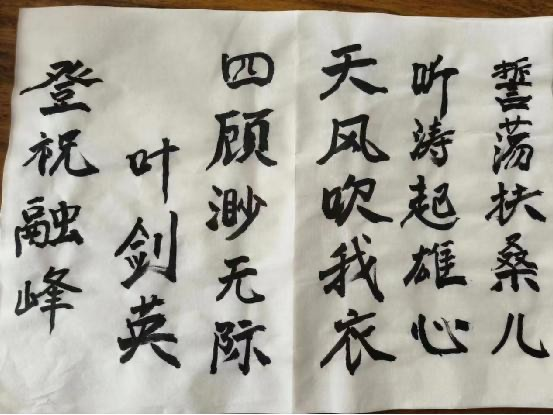 登祝融峰
叶剑英
四顾渺无际
天风吹我衣
听涛起雄心
誓荡扶桑儿